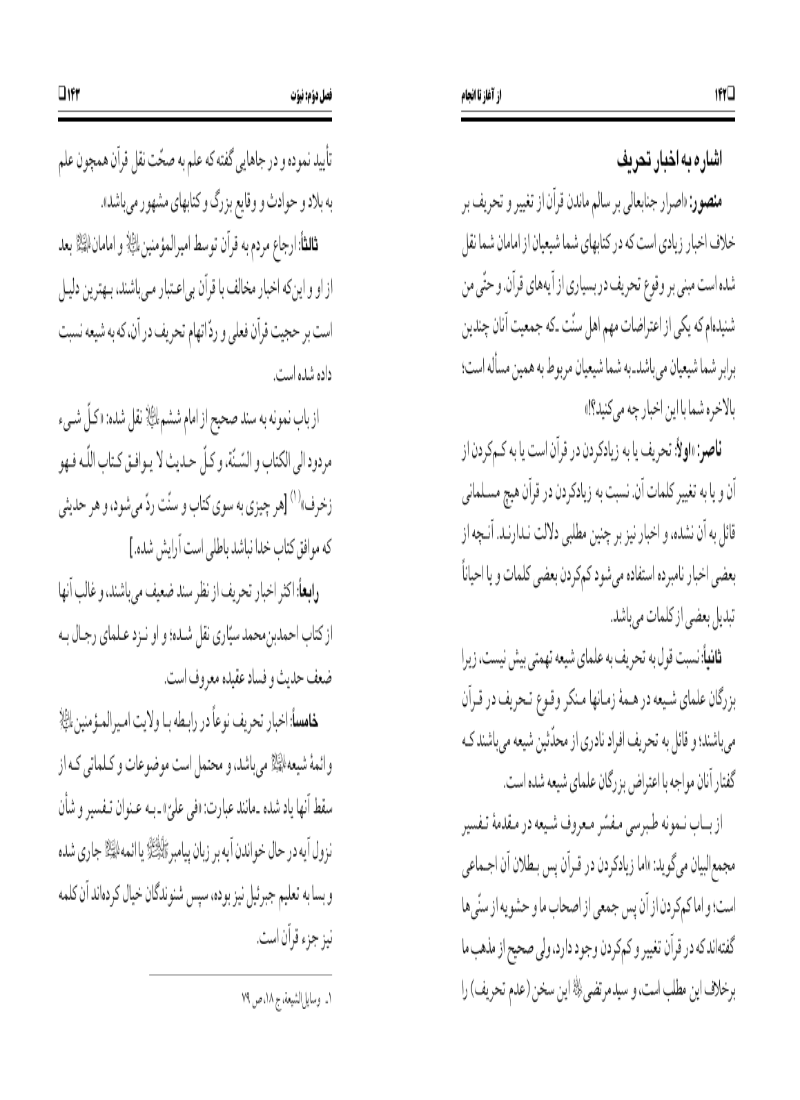 ❑۱۴۲ از آغاز تا انجام
اشاره به اخبار تحریف
منصور: «اصرار جنابعالی بر سالم ماندن قرآن از تغییر و تحریف بر
خلاف اخبار زیادی است که در کتابهای شما شیعیان از امامان شما نقل
شده است مبنی بر وقوع تحریف در بسیاری از آیه‌های قرآن. و حتّی من
شنیده‌ام که یکی از اعتراضات مهم اهل سنّت ـ که جمعیت آنان چندین
برابر شما شیعیان می‌باشد ـ به شما شیعیان مربوط به همین مسأله است؛
بالاخره شما با این اخبار چه می‌کنید؟!»
ناصر: «اولاً: تحریف یا به زیادکردن در قرآن است یا به کم‌کردن از
آن و یا به تغییر کلمات آن. نسبت به زیادکردن در قرآن هیچ مسلمانی
قائل به آن نشده، و اخبار نیز بر چنین مطلبی دلالت ندارند. آنچه از
بعضی اخبار نامبرده استفاده می‌شود کم‌کردن بعضی کلمات و یا احیاناً
تبدیل بعضی از کلمات می‌باشد.
ثانیاً: نسبت قول به تحریف به علمای شیعه تهمتی بیش نیست، زیرا
بزرگان علمای شیعه در همۀ زمانها منکر وقوع تحریف در قرآن
می‌باشند؛ و قائل به تحریف افراد نادری از محدّثین شیعه می‌باشند که
گفتار آنان مواجه با اعتراض بزرگان علمای شیعه شده است.
از باب نمونه طبرسی مفسّر معروف شیعه در مقدمۀ تفسیر
مجمع‌البیان می‌گوید: «اما زیادکردن در قرآن پس بطلان آن اجماعی
است؛ و اما کم‌کردن از آن پس جمعی از اصحاب ما و حشویه از سنّی‌ها
گفته‌اند که در قرآن تغییر و کم‌کردن وجود دارد، ولی صحیح از مذهب ما
برخلاف این مطلب است، و سید مرتضی این سخن (عدم تحریف) را
فصل دوّم: نبوّت ۱۴۳❑
تأیید نموده و در جاهایی گفته که علم به صحّت نقل قرآن همچون علم
به بلاد و حوادث و وقایع بزرگ و کتابهای مشهور می‌باشد».
ثالثاً: ارجاع مردم به قرآن توسط امیرالمؤمنین و امامان بعد
از او و این‌که اخبار مخالف با قرآن بی‌اعتبار می‌باشند، بهترین دلیل
است بر حجیت قرآن فعلی و ردّ اتهام تحریف در آن، که به شیعه نسبت
داده شده است.
از باب نمونه به سند صحیح از امام ششم نقل شده: «کلّ شیء
مردود الی الکتاب و السّنّة، و کلّ حدیث لا یوافق کتاب اللّه فهو
زخرف»(۱) [هر چیزی به سوی کتاب و سنّت ردّ می‌شود، و هر حدیثی
که موافق کتاب خدا نباشد باطلی است آرایش شده.]
رابعاً: اکثر اخبار تحریف از نظر سند ضعیف می‌باشند، و غالب آنها
از کتاب احمدبن‌محمد سیّاری نقل شده؛ و او نزد علمای رجال به
ضعف حدیث و فساد عقیده معروف است.
خامساً: اخبار تحریف نوعاً در رابطه با ولایت امیرالمؤمنین
و ائمۀ شیعه می‌باشد، و محتمل است موضوعات و کلماتی که از
سقط آنها یاد شده ـ مانند عبارت: «فی علیّ» ـ به عنوان تفسیر و شأن
نزول آیه در حال خواندن آیه بر زبان پیامبر یا ائمه جاری شده
و بسا به تعلیم جبرئیل نیز بوده، سپس شنوندگان خیال کرده‌اند آن کلمه
نیز جزء قرآن است.
۱ـ وسایل‌الشیعة، ج ۱۸، ص ۷۹